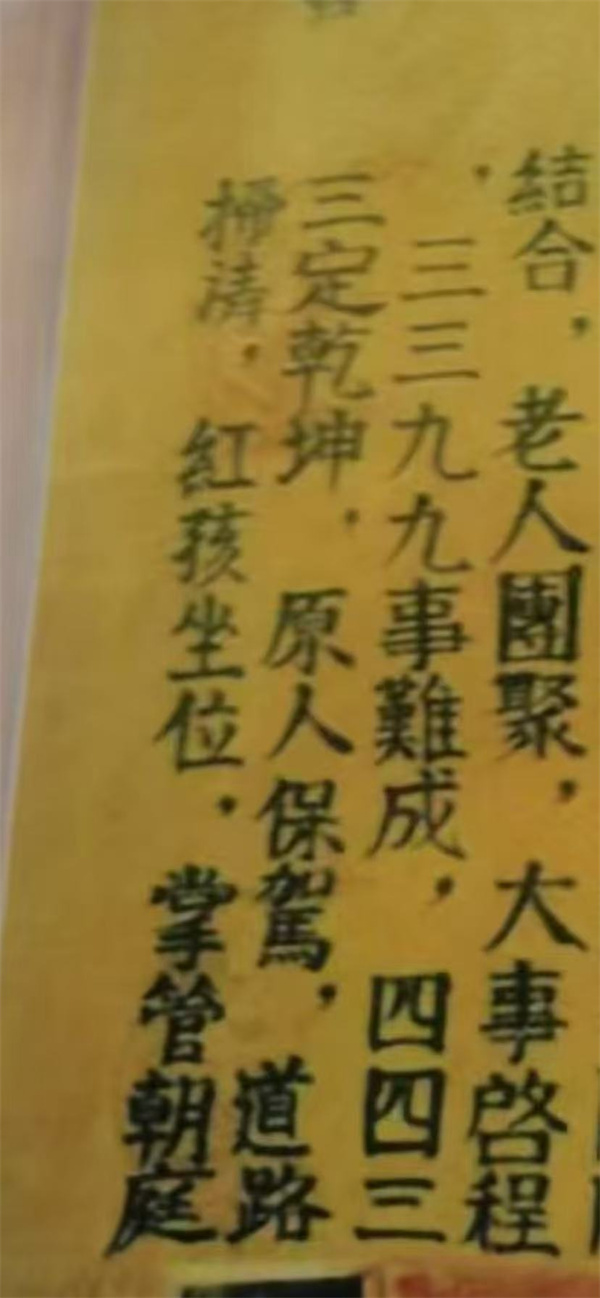 結合，老人團聚，大事啓程
，三三九九事難成，四四三
三定乾坤，原人保駕，道路
掃清，紅孩坐位，掌管朝庭